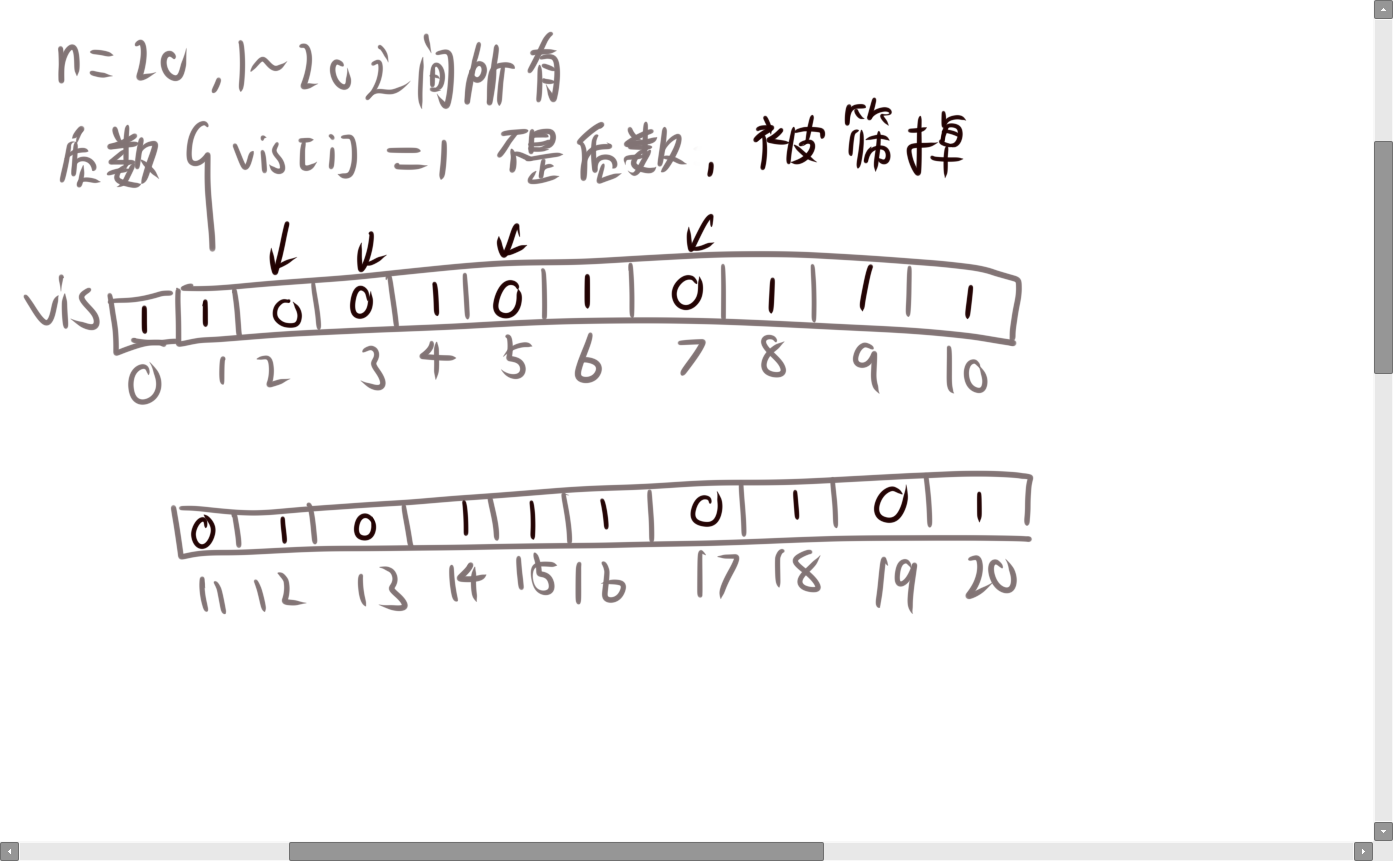 n=20,1~20之间所有
质数 vis[i]=1 不是质数,被筛掉
vis 1 1 0 0 1 0 1 0 1 1 1
0 1 2 3 4 5 6 7 8 9 10
0 1 0 1 1 1 0 1 0 1
11 12 13 14 15 16 17 18 19 20